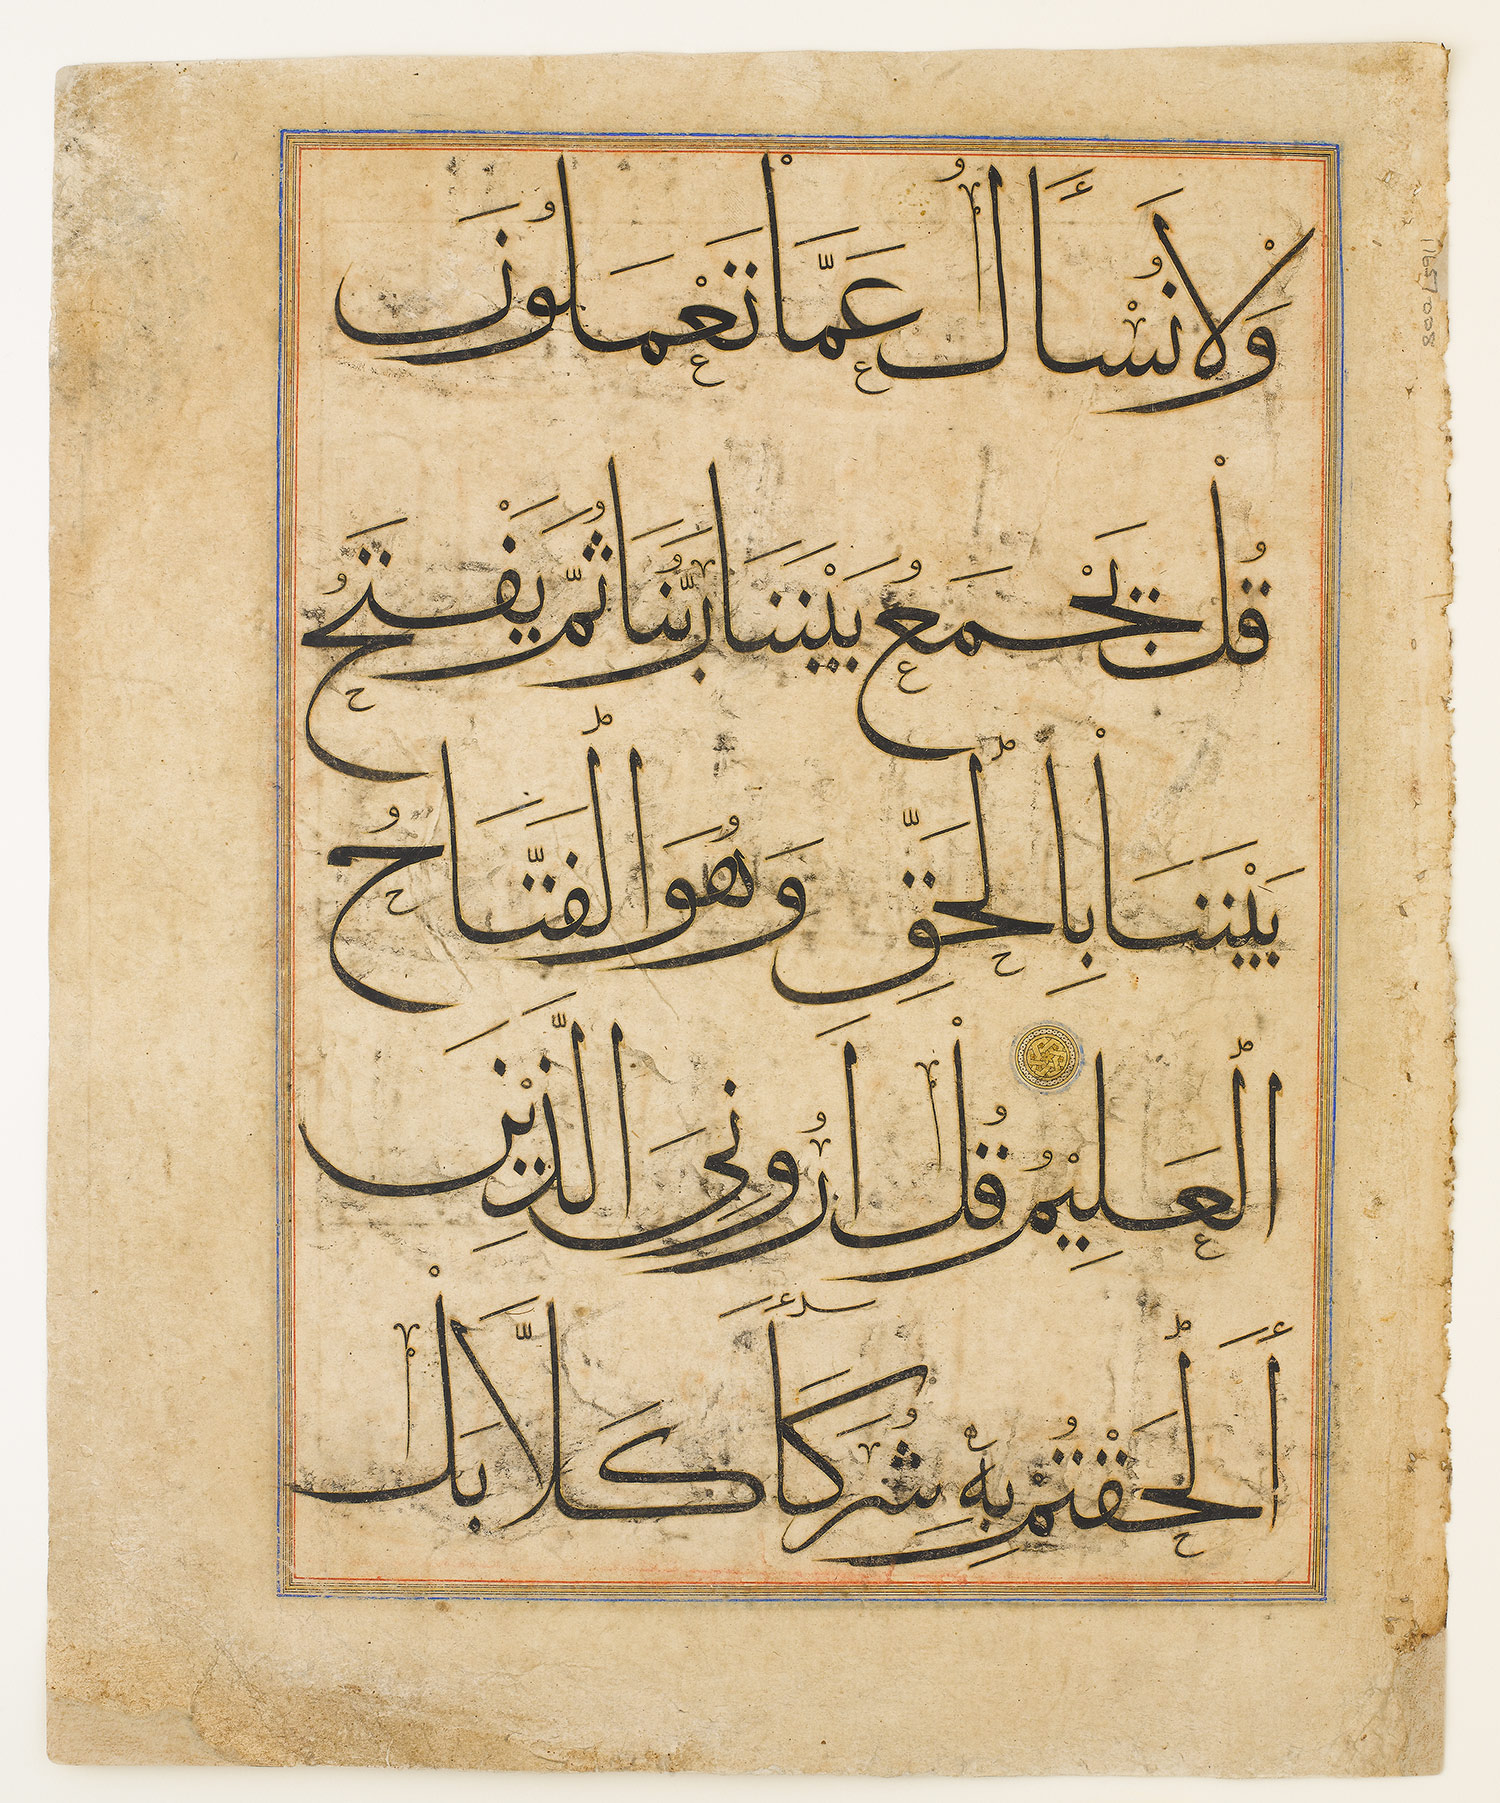 وَلَا نُسْأَلُ عَمَّا تَعْمَلُونَ
قُلْ يَجْمَعُ بَيْنَنَا رَبُّنَا ثُمَّ يَفْتَحُ
بَيْنَنَا بِالْحَقِّ وَهُوَ الْفَتَّاحُ
الْعَلِيْمُ قُلْ اَرُوْنِىَ الَّذِيْنَ
أَلْحَقْتُمْ بِهٖ شُرَكَأَ كَلَّا بَلْ
11957.008